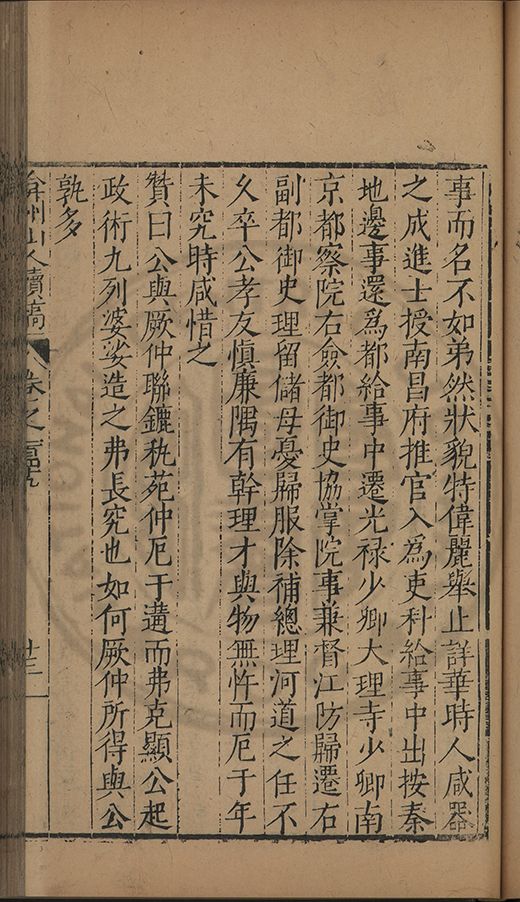 事而名不如弟然狀貌特偉麗舉止詳華時人咸器
之成進士授南昌府推官入為吏科給事中出按秦
地邊事還為都給事中遷光禄少卿大理寺少卿南
京都察院右僉都御史協掌院事兼督江防歸遷右
副都御史理留儲母憂歸服除補總理河道之任不
久卒公孝友慎廉隅有幹理才與物無忤而厄于年
未究時咸惜之
贊曰公與厥仲聯鑣秇苑仲厄于遘而弗克顯公起
政術九列婆娑造之弗長究也如何厥仲所得與公
孰多
弇州山人續稿 卷之一百四十九 廿三